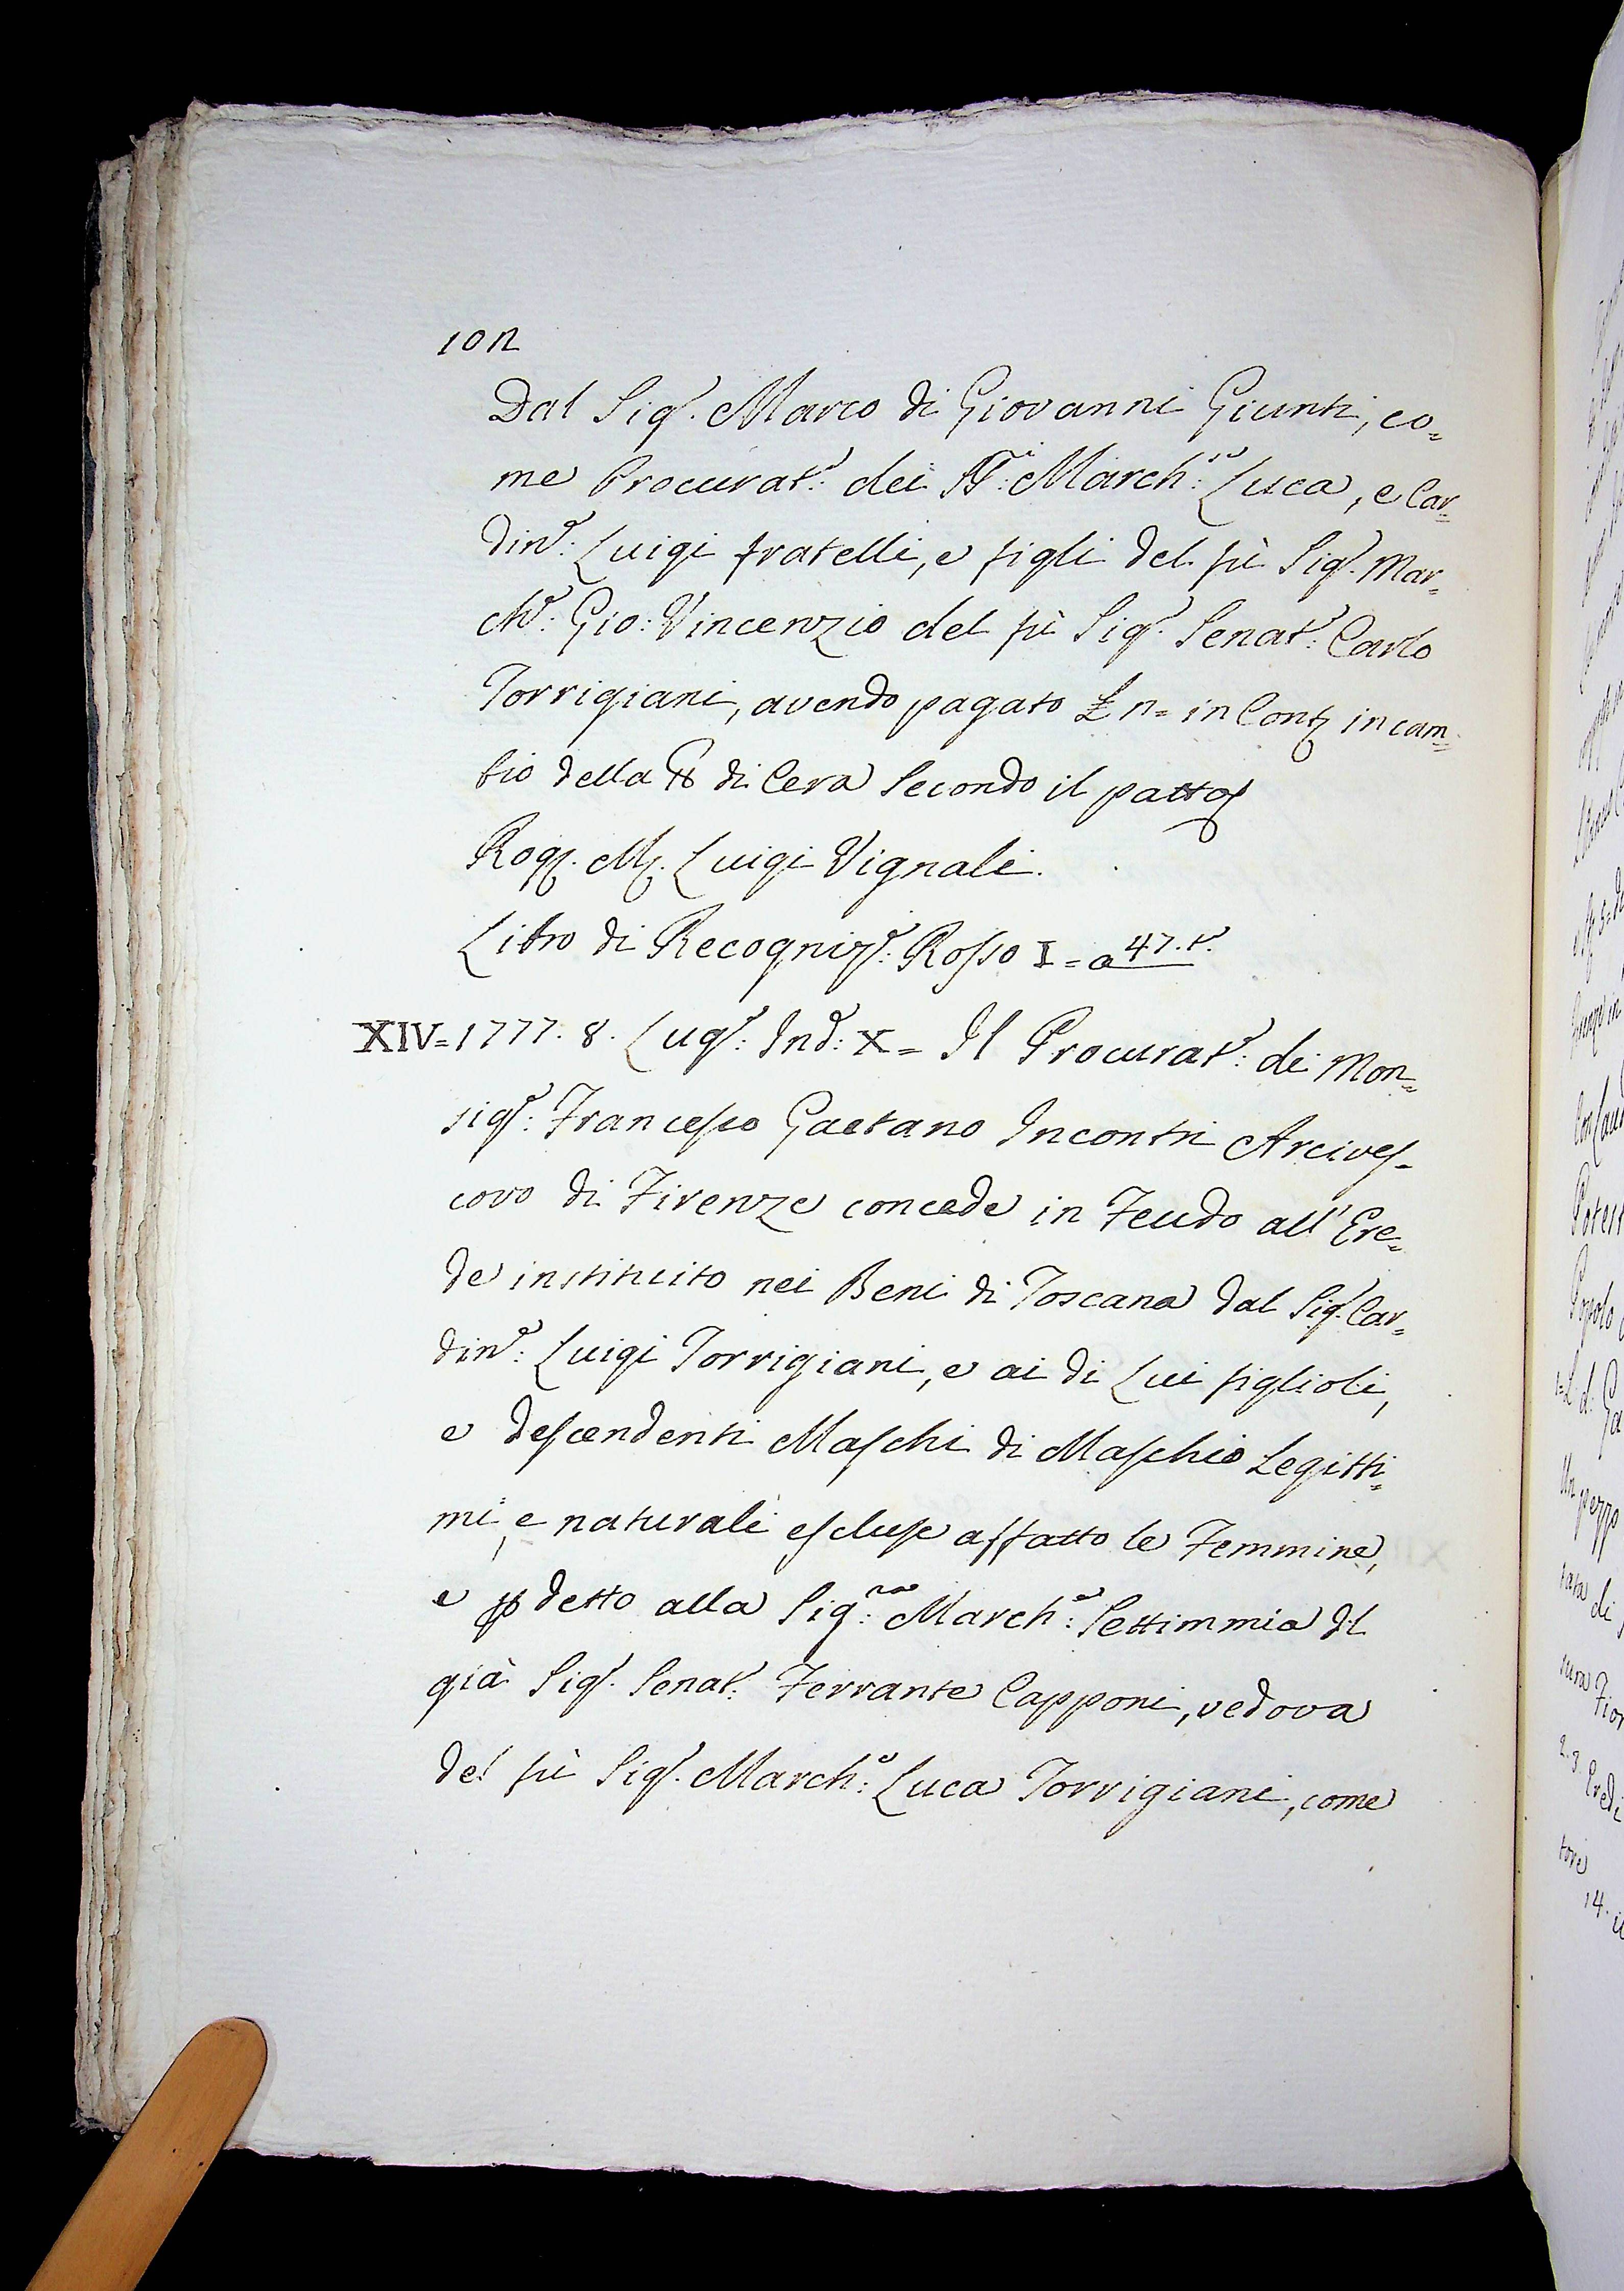 102
Dal Sig.ʳ Marco di Giovanni Giunti, co=
me Procurat.ʳ dei SS.ʳⁱ March.ⁱ Luca, e Car=
din.ᵉ Luigi fratelli, e figli del fù Sig.ʳ Mar=
ch.ᵉ Gio: Vincenzio del fù Sig.ʳ Senat.ʳ Carlo
Torrigiani, avendo pagato £ 2= in Cont. in cam=
bio della ℔ di Cera secondo il patto
Rog. M. Luigi Vignali.
Libro di Recogniz.ᵉ Rosso I = a 47. t.
XIV= 1777. 8. Lug.º Ind.ᵉ X= Il Procurat.ʳ di Mon=
sig.ʳ Francesco Gaetano Incontri Arcives-
covo di Firenze concede in Feudo all' Ere=
de instituito nei Beni di Toscana dal Sig.ʳ Car=
din.ᵉ Luigi Torrigiani, e ai di Lui figlioli,
e descendenti Maschi di Maschio Legitti=
mi, e naturali escluse affatto le Femmine,
e ꝑ detto alla Sig.ʳᵃ March.ᵃ Settimmia dl
già Sig.ʳ Senat.ʳ Ferrante Capponi, vedova
del fù Sig.ʳ March.ᵉ Luca Torrigiani, come